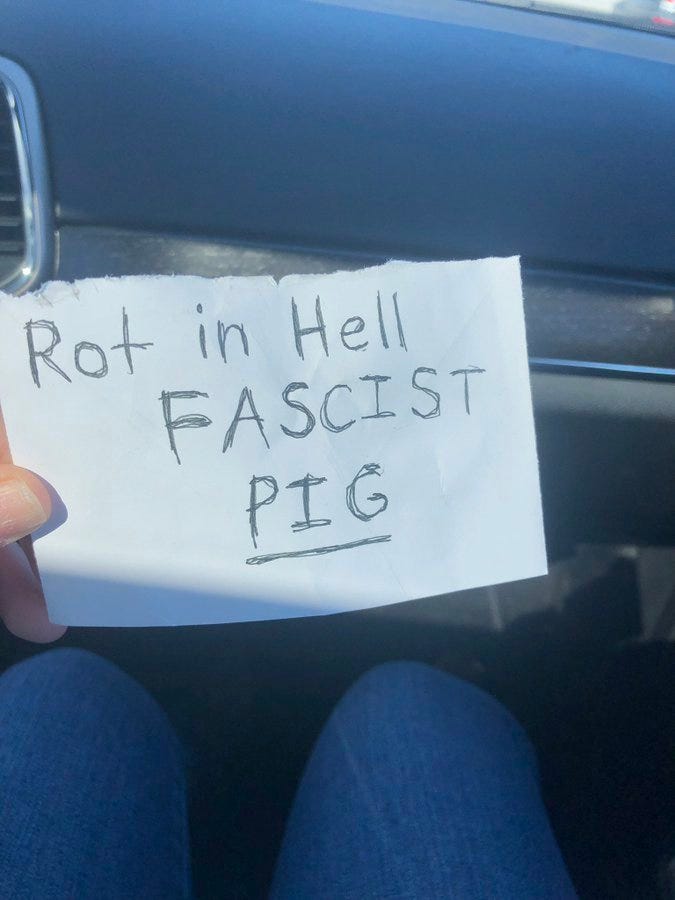 Rot in Hell
FASCIST
PIG